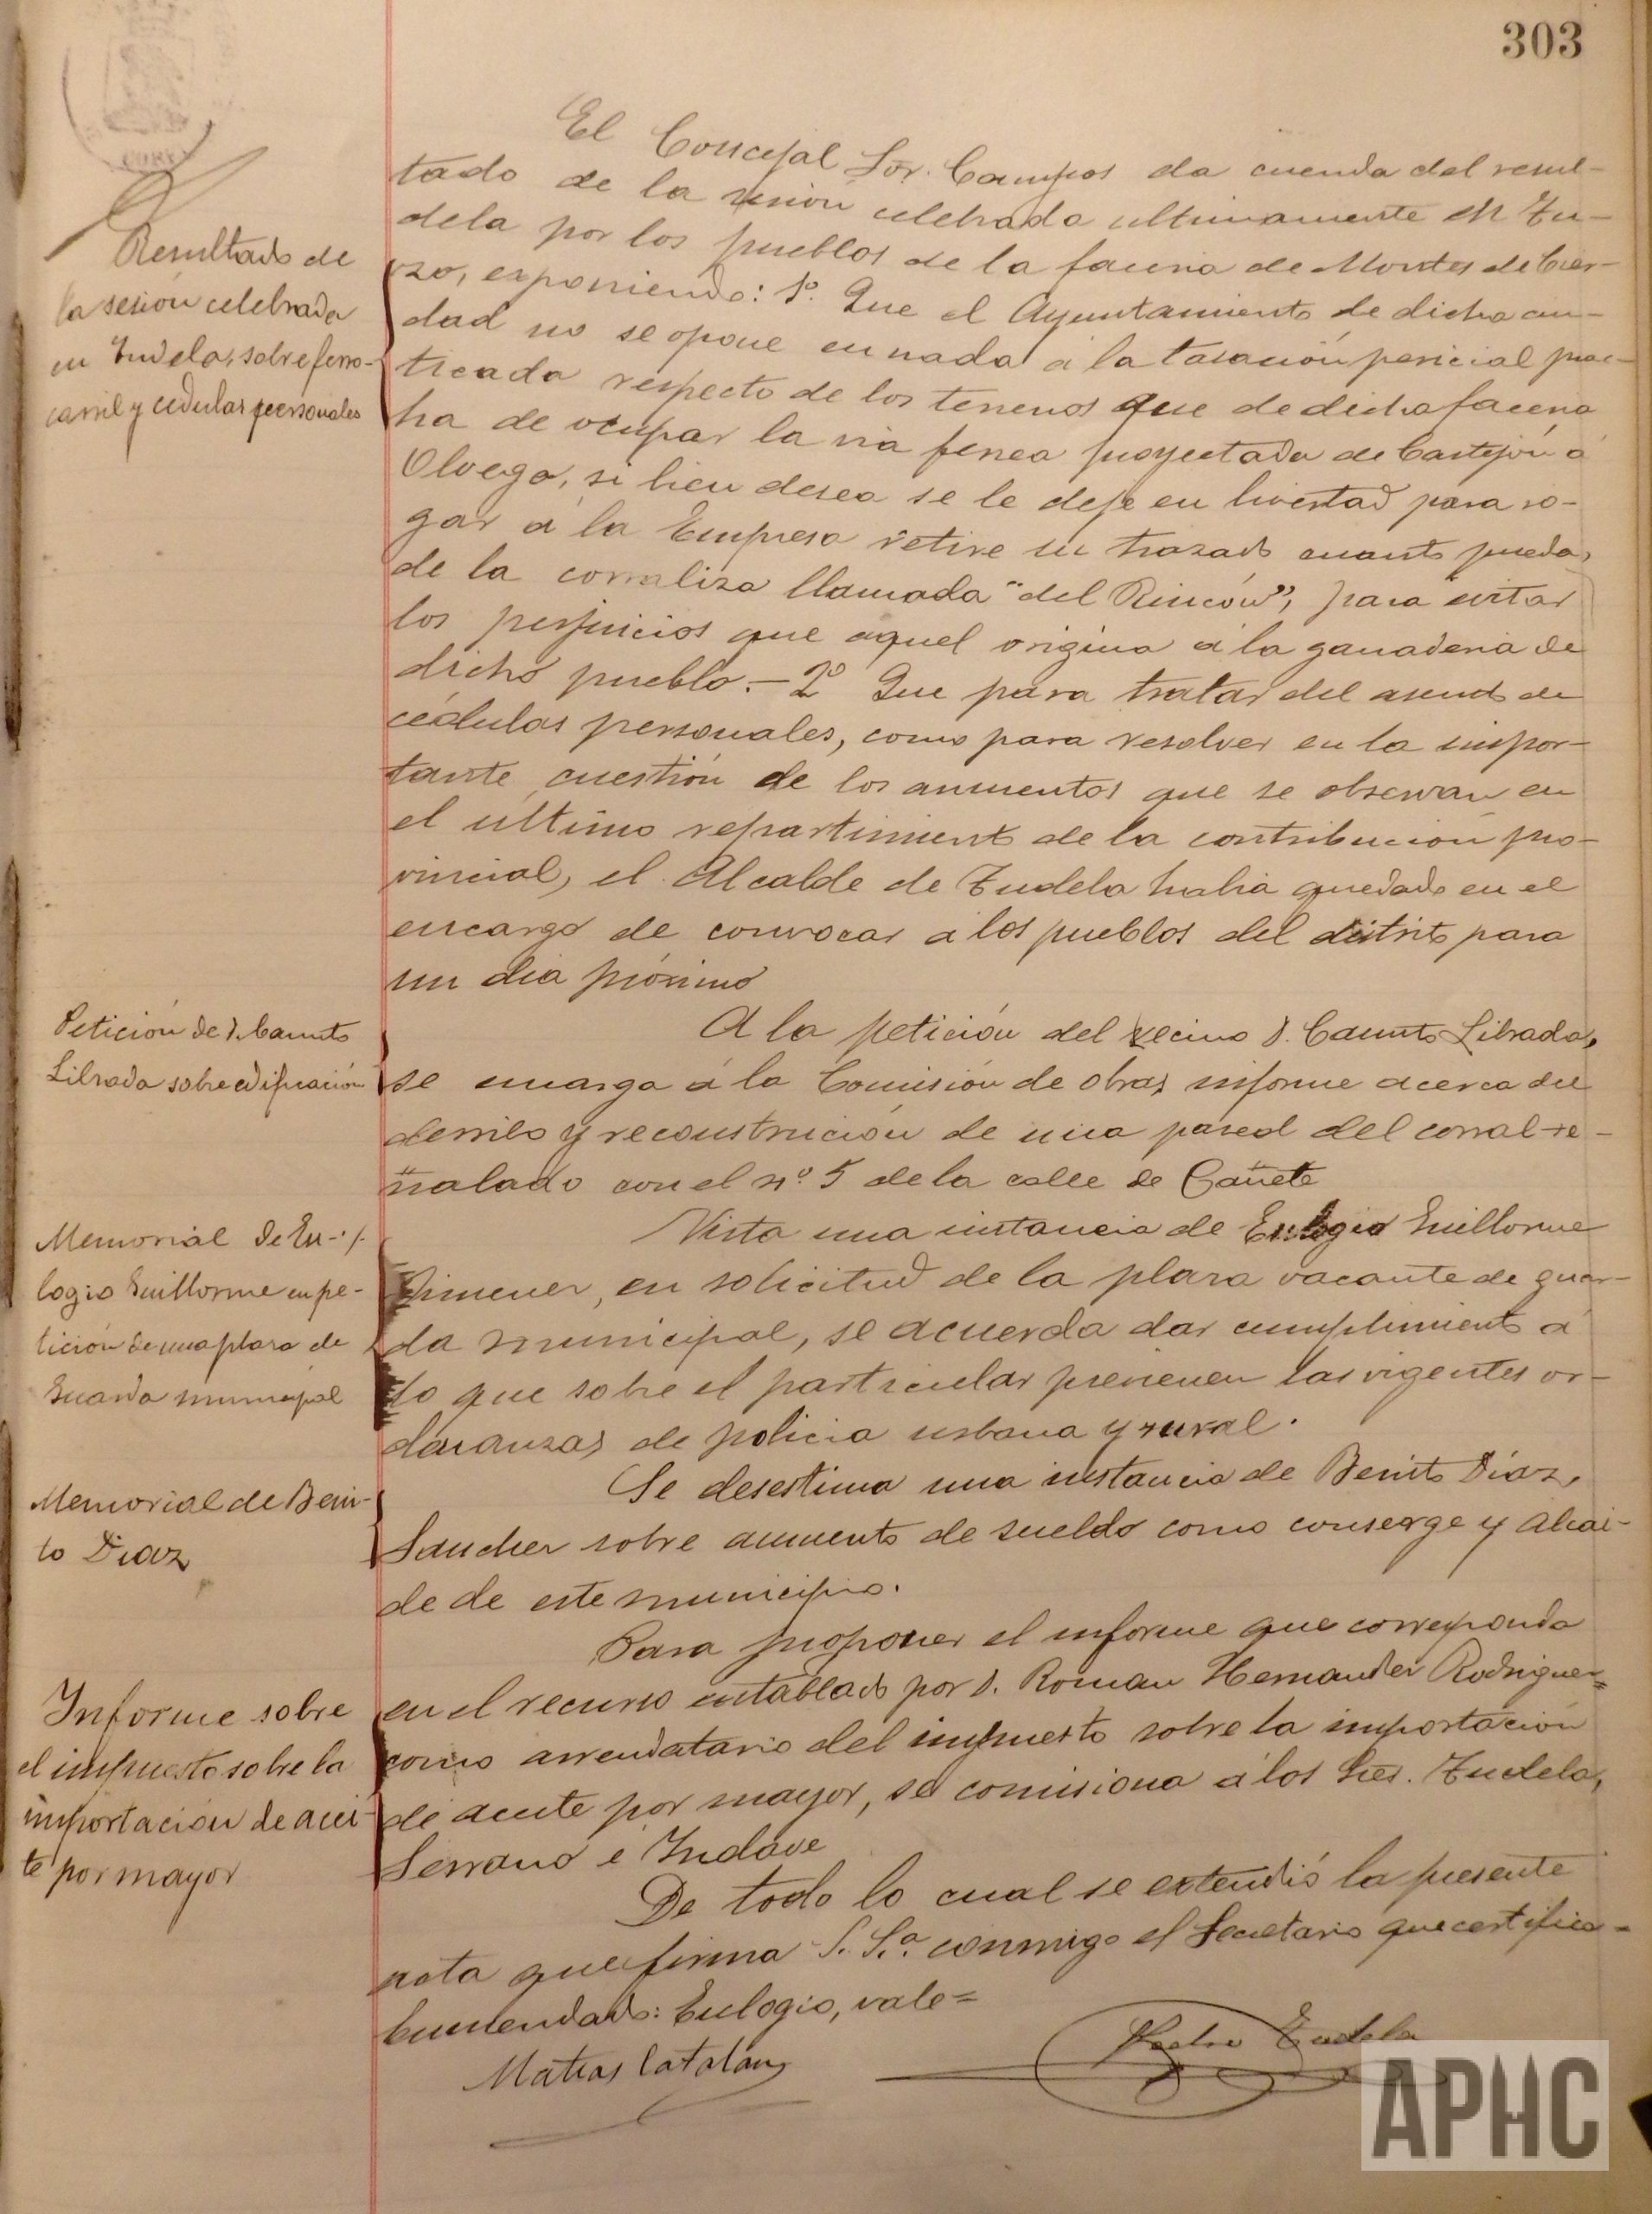 303
El Concejal Sor. Campos da cuenda del resul-
tado de la sesión celebrada ultimamente en Tu-
dela por los pueblos de la faceria de Montes de Cier-
zo, exponiendo: 1º. Que el Ayuntamiento de dicha ciu-
dad no se opone en nada á la tasación pericial prac-
ticada respecto de los terrenos que de dicha facería
ha de ocupar la via ferrea proyectada de Castejón á
Olvega, si bien desea se le deje en livertad para ro-
gar á la Empresa retire su trazado cuanto pueda,
de la corraliza llamada "del Rincón", para evitar
los perjuicios que aquel origina á la ganaderia de
dicho pueblo.- 2º Que para tratar del asunto de
cédulas personales, como para resolver en la impor-
tante cuestión de los aumentos que se observan en
el último repartimiento de la contribución pro-
vincial, el Alcalde de Tudela habia quedado en el
encargo de convocar á los pueblos del distrito para
un dia próximo
A la petición del vecino D. Canuto Librada,
se encarga á la Comisión de obras informe acerca del
derribo y reconstrucción de una pared del corral se-
ñalado con el nº. 5 de la calle de Cañete
Vista una instancia de Eulogio Guillorme
Jimenez, en solicitud de la plaza vacante de guar-
da municipal, se acuerda dar cumplimiento á
lo que sobre el particular previenen las vigentes or-
dananzas de policia urbana y rural.
Se desestima una instancia de Benito Díaz,
Sanchez sobre aumento de sueldo como conserge y Alcai-
de de este municipio.
Para proponer el informe que corresponda
en el recurso entablado por D. Roman Hernandez Rodriguez=
como arrendatario del impuesto sobre la importación
de aceite por mayor, se comisiona á los Sres. Tudela,
Serrano é Yndave
De todo lo cual se extendió la presente
acta que firma S. S.ª conmigo el Secretario que certifico=
Enmendado: Eulogio, vale=
Matias Catalán
Pedro Tudela
Resultado de
la sesión celebrada
en Tudela, sobre ferro-
carril y cédulas personales
Petición de D. Canuto
Librada sobre edificación
Memorial de Eu-
logio Guillorme en pe-
tición de una plaza de
Guarda municipal
Memorial de Beni-
to Diaz
Informe sobre
el impuesto sobre la
importación de acei-
te por mayor
APHC